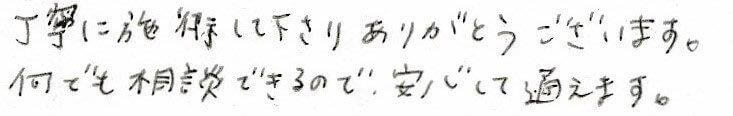 丁寧に施術して下さりありがとうございます。
何でも相談できるので、安心して通えます。